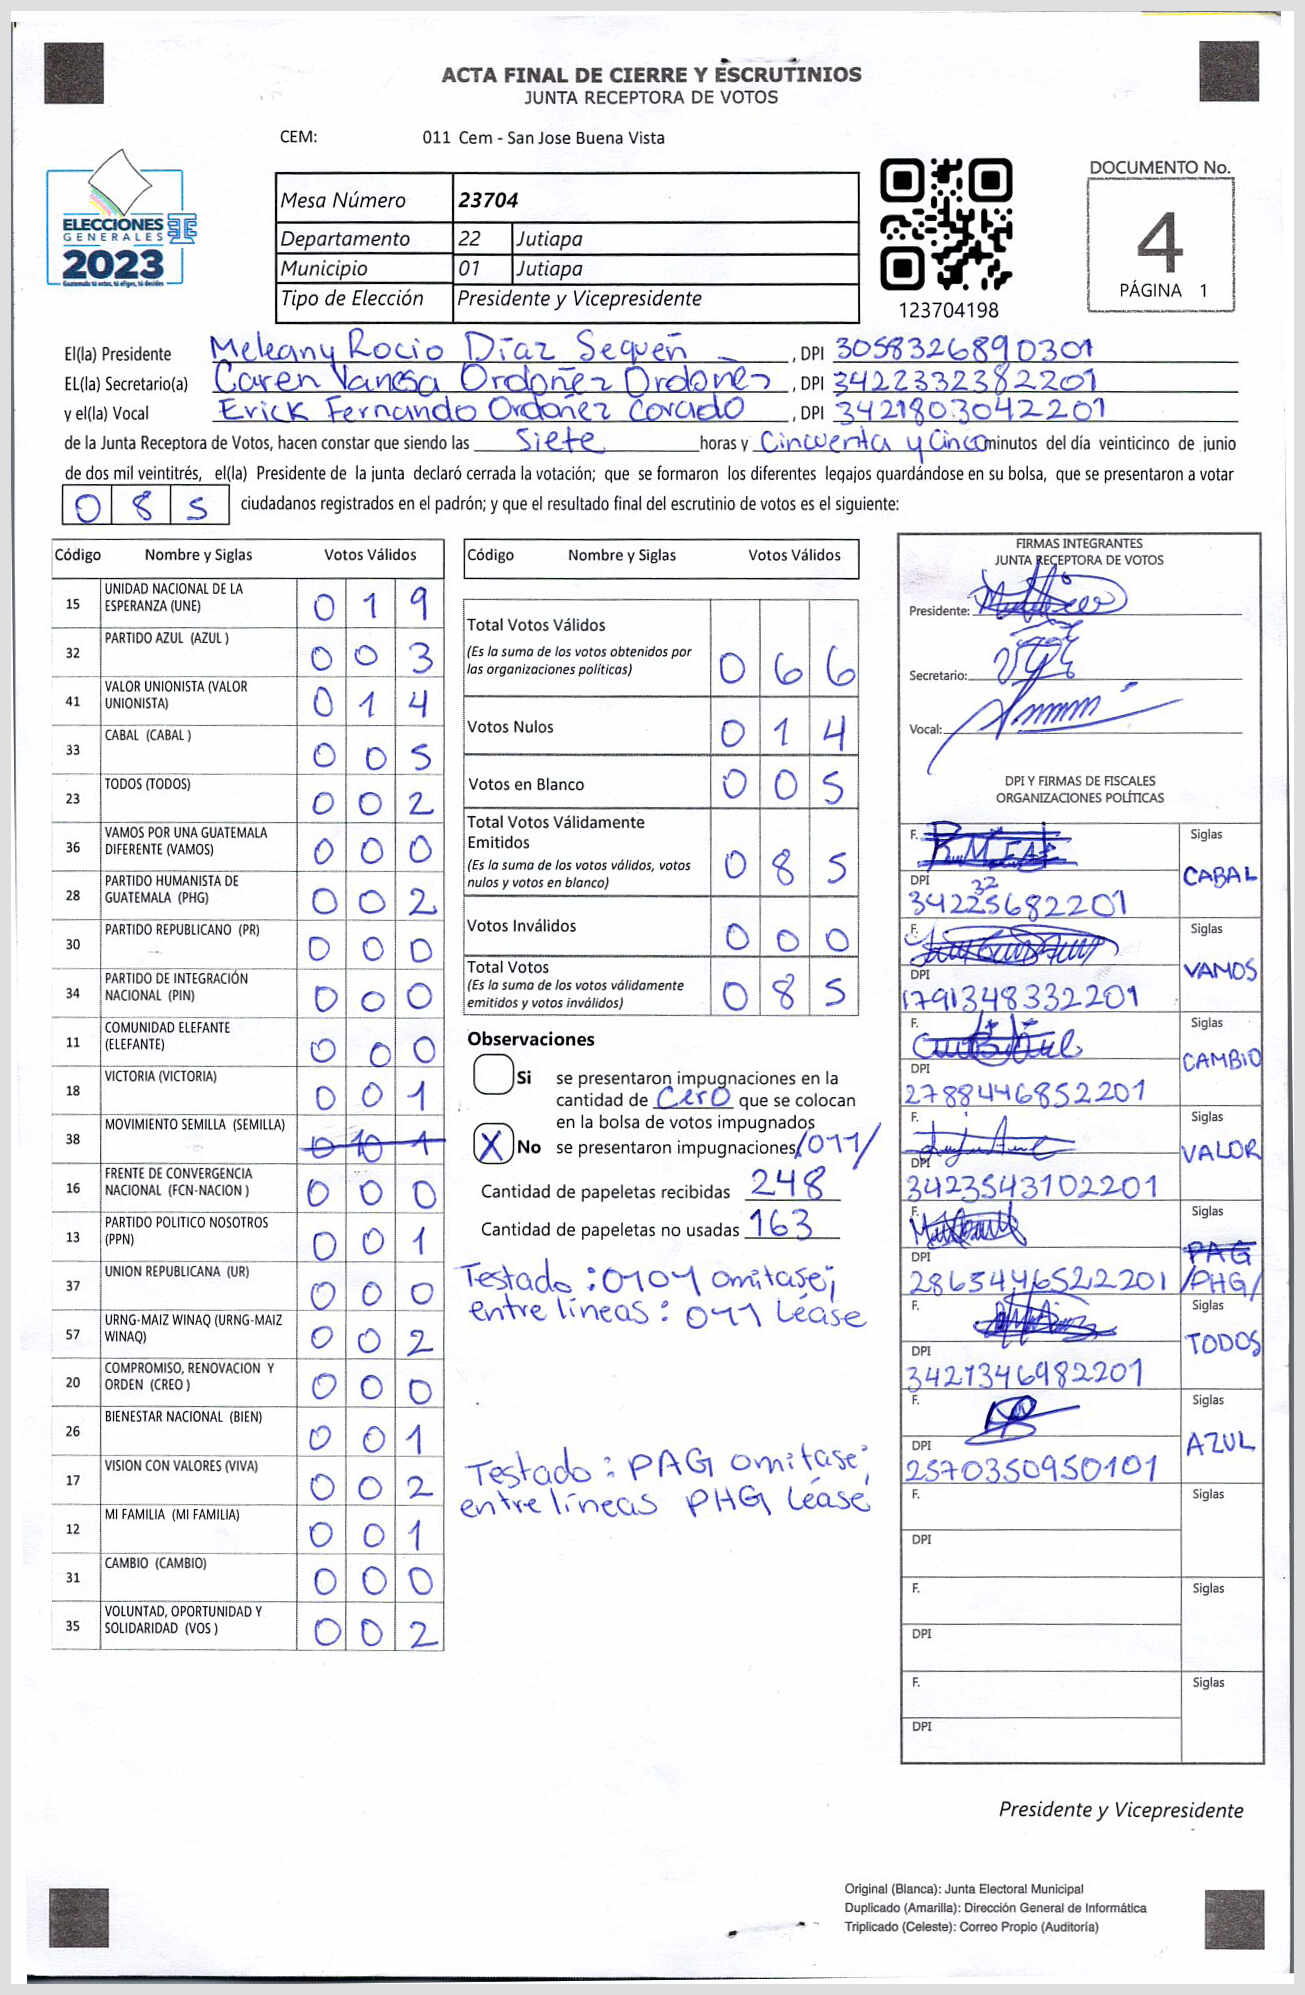 ACTA FINAL DE CIERRE Y ESCRUTINIOS
JUNTA RECEPTORA DE VOTOS
CEM: 011 Cem - San Jose Buena Vista
ELECCIONES
GENERALES
2023
Guatemala tú votas, tú eliges, tú decides
Mesa Número 23704
Departamento 22 Jutiapa
Municipio 01 Jutiapa
Tipo de Elección Presidente y Vicepresidente
123704198
DOCUMENTO No.
4
PÁGINA 1
El(la) Presidente Meleany Rocio Díaz Sequeñ, DPI 3058326890301
EL(la) Secretario(a) Caren Vanesa Ordoñez Ordoñes, DPI 3422332382201
y el(la) Vocal Erick Fernando Ordoñez Corado, DPI 3421803042201
de la Junta Receptora de Votos, hacen constar que siendo las siete horas y Cincuenta y Cinco minutos del día veinticinco de junio
de dos mil veintitrés, el(la) Presidente de la junta declaró cerrada la votación; que se formaron los diferentes legajos guardándose en su bolsa, que se presentaron a votar
085 ciudadanos registrados en el padrón; y que el resultado final del escrutinio de votos es el siguiente:
Código Nombre y Siglas Votos Válidos
15 UNIDAD NACIONAL DE LA ESPERANZA (UNE) 019
32 PARTIDO AZUL (AZUL ) 003
41 VALOR UNIONISTA (VALOR UNIONISTA) 014
33 CABAL (CABAL ) 005
23 TODOS (TODOS) 002
36 VAMOS POR UNA GUATEMALA DIFERENTE (VAMOS) 000
28 PARTIDO HUMANISTA DE GUATEMALA (PHG) 002
30 PARTIDO REPUBLICANO (PR) 000
34 PARTIDO DE INTEGRACIÓN NACIONAL (PIN) 000
11 COMUNIDAD ELEFANTE (ELEFANTE) 000
18 VICTORIA (VICTORIA) 001
38 MOVIMIENTO SEMILLA (SEMILLA) 0101
16 FRENTE DE CONVERGENCIA NACIONAL (FCN-NACION ) 000
13 PARTIDO POLITICO NOSOTROS (PPN) 001
37 UNION REPUBLICANA (UR) 000
57 URNG-MAIZ WINAQ (URNG-MAIZ WINAQ) 002
20 COMPROMISO, RENOVACION Y ORDEN (CREO ) 000
26 BIENESTAR NACIONAL (BIEN) 001
17 VISION CON VALORES (VIVA) 002
12 MI FAMILIA (MI FAMILIA) 001
31 CAMBIO (CAMBIO) 000
35 VOLUNTAD, OPORTUNIDAD Y SOLIDARIDAD (VOS ) 002
Código Nombre y Siglas Votos Válidos
Total Votos Válidos 066
(Es la suma de los votos obtenidos por
las organizaciones políticas)
Votos Nulos 014
Votos en Blanco 005
Total Votos Válidamente
Emitidos 085
(Es la suma de los votos válidos, votos
nulos y votos en blanco)
Votos Inválidos 000
Total Votos 085
(Es la suma de los votos válidamente
emitidos y votos inválidos)
Observaciones
Si se presentaron impugnaciones en la
cantidad de Cero que se colocan
en la bolsa de votos impugnados
X No se presentaron impugnaciones /011/
Cantidad de papeletas recibidas 248
Cantidad de papeletas no usadas 163
Testado: 0101 omitase;
entre líneas: 011 Léase
Testado: PAG omitase;
entre líneas PHG Léase
FIRMAS INTEGRANTES
JUNTA RECEPTORA DE VOTOS
Presidente:
Secretario:
Vocal:
DPI Y FIRMAS DE FISCALES
ORGANIZACIONES POLÍTICAS
F. Siglas
CABAL
DPI
32
34225682201
F. Siglas
VAMOS
DPI
1791348332201
F. Siglas
CAMBIO
DPI
2788446852201
F. Siglas
VALOR
DPI
3423543102201
F. Siglas
PAG
DPI
2865446522201 /PHG/
F. Siglas
TODOS
DPI
3421346982201
F. Siglas
AZUL
DPI
2570350950101
F. Siglas
DPI
F. Siglas
DPI
F. Siglas
DPI
Presidente y Vicepresidente
Original (Blanca): Junta Electoral Municipal
Duplicado (Amarilla): Dirección General de Informática
Triplicado (Celeste): Correo Propio (Auditoría)